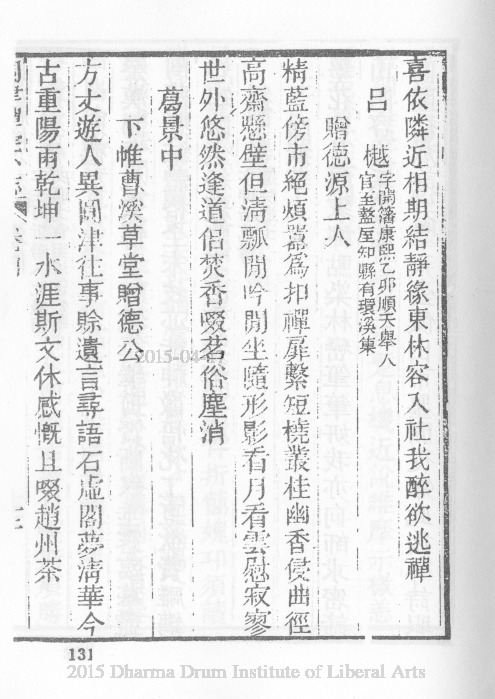 喜依隣近相期結靜緣東林容入社我醉欲逃禪
呂　樾字開籓康熙乙卯順天舉人
官至盩厔知縣有環溪集
贈德源上人
精藍傍市絕煩囂爲扣禪扉繫短橈叢桂幽香侵曲徑
高齋懸壁但淸瓢閒吟閒坐隨形影看月看雲慰寂寥
世外悠然逢道侶焚香啜茗俗塵消
葛景中
下帷曹溪草堂贈德公
方丈遊人異圖津往事賒遺言尋語石虛閣夢淸華今
古重陽雨乾坤一水涯斯文休感慨且啜趙州茶
131
2015-04-
2015 Dharma Drum Institute of Liberal Arts